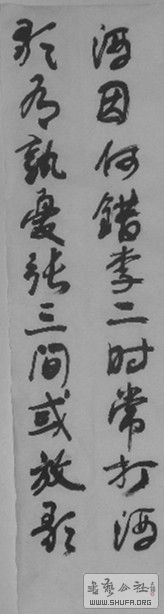 酒因何錯李二时常打酒
歌为孰憂张三间或放歌
书艺公社
WWW.SHUFA.ORG